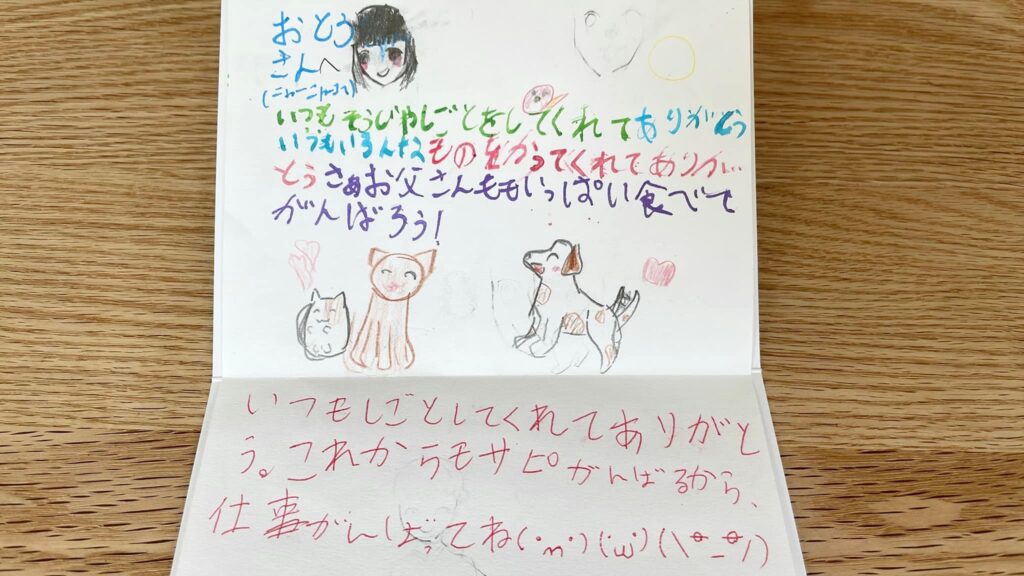 おとう
さんへ
いつもそうじやしごとをしてくれてありがとう
いつもいろんなものをかってくれてありがい
とうさぁお父さんももいっぱい食べて
がんばろう!
いつもしごとしてくれてありがと
う。これからもサピがんばるから、
仕事がんばってね(･m･)(･ω･)